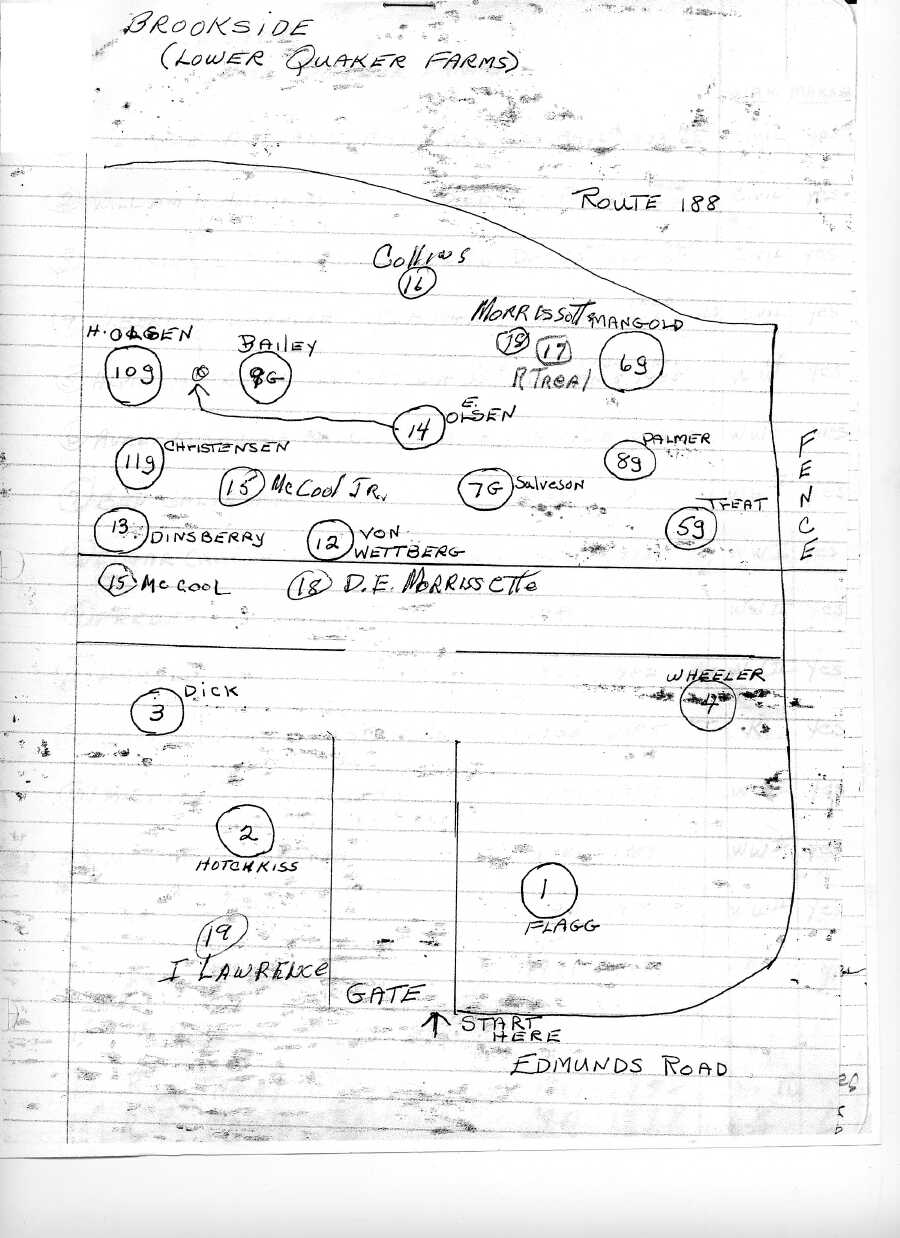 BROOKSIDE
(LOWER QUAKER FARMS)
ROUTE 188
Collins
16
MORRISSOtt
MANGOLD
18
17
6g
R TREAT
H. OLSEN
10g
BAILEY
9G
E.
OLSEN
14
PALMER
8g
CHRISTENSEN
11g
15
McCool JR.
7G
Salveson
TREAT
5g
FENCE
13
DINSBERRY
12
VON
WETTBERG
15
McCOOL
18
D.E. MORRISSEtte
WHEELER
4
DICK
3
2
HOTCHKISS
1
FLAGG
19
I LAWRENCE
GATE
START
HERE
EDMUNDS ROAD